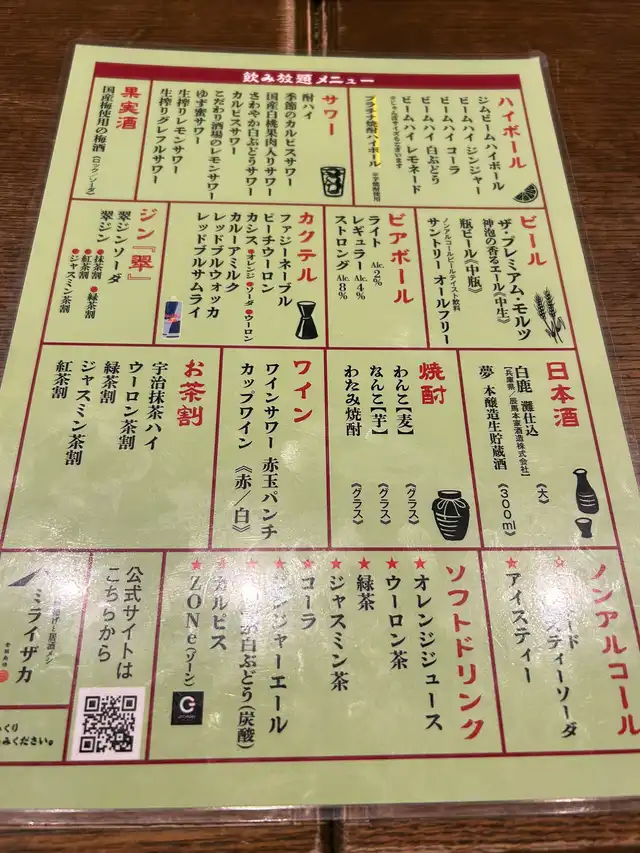 飲み放題メニュー
ハイボール
ジムビームハイボール
ビームハイ ジンジャー
ビームハイ コーラ
ビームハイ 白ぶどう
ビームハイ レモネード
プラチナ焼酎ハイボール
サワー
酎ハイ
季節のカルピスサワー
国産白桃果肉入りサワー
さわやか白ぶどうサワー
カルピスサワー
こだわり酒場のレモンサワー
ゆず蜜サワー
生搾りレモンサワー
生搾りグレフルサワー
果実酒
国産梅使用の梅酒(ロック/ソーダ)
ビール
ザ・プレミアム・モルツ
神泡の香るエール《中生》
瓶ビール《中瓶》
ノンアルコールビールテイスト飲料
サントリー オールフリー
ビアボール
ライト Alc.2%
レギュラー Alc.4%
ストロング Alc.8%
カクテル
ファジーネーブル
ピーチウーロン
カシス●オレンジ●ソーダ●ウーロン
カルーアミルク
レッドブルウォッカ
レッドブルサムライ
ジン『翠』
翠ジンソーダ
翠ジン
●抹茶割 ●緑茶割
●紅茶割
●ジャスミン茶割
日本酒
白鹿 灘仕込 《大》
【兵庫県/辰馬本家酒造株式会社】
夢 本醸造生貯蔵酒 《300ml》
焼酎
わんこ【麦】 《グラス》
なんこ【芋】 《グラス》
わたみ焼酎 《グラス》
ワイン
ワインサワー 赤玉パンチ
カップワイン 《赤/白》
お茶割
宇治抹茶ハイ
ウーロン茶割
緑茶割
ジャスミン茶割
紅茶割
ノンアルコール
ティーソーダ
★アイスティー
ソフトドリンク
★オレンジジュース
★ウーロン茶
★緑茶
★ジャスミン茶
★コーラ
★ジンジャーエール
白ぶどう(炭酸)
★カルピス
★ZONe(ゾーン)
公式サイトは
こちらから
ミライザカ